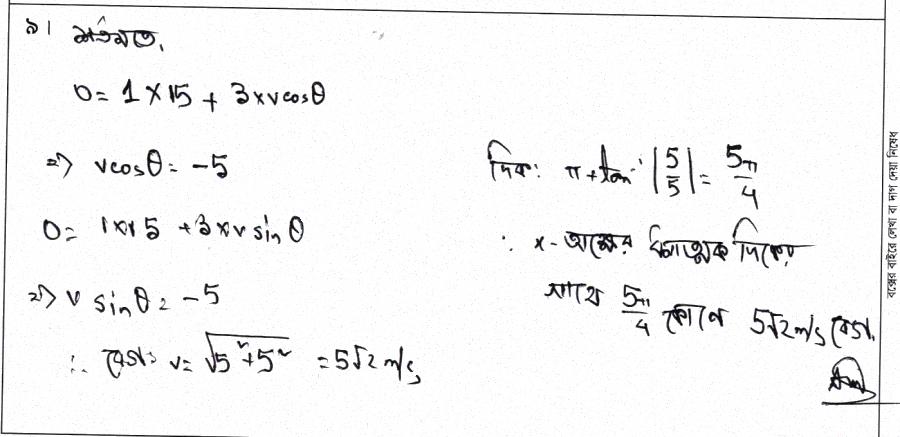 ৯। শর্তমতে,
0 = 1 × 15 + 3×vcosθ
⇒ vcosθ = -5
0 = 1×15 + 3×v sinθ
⇒ v sinθ = -5
∴ বেগ: v = √5²+5² = 5√2 m/s
দিক: π + tan⁻¹ |5/5| = 5π/4
∴ x-অক্ষের ধনাত্মক দিকের
সাথে 5π/4 কোণে 5√2 m/s বেগ.
Ans
বক্সের বাইরে লেখা বা দাগ দেয়া নিষেধ